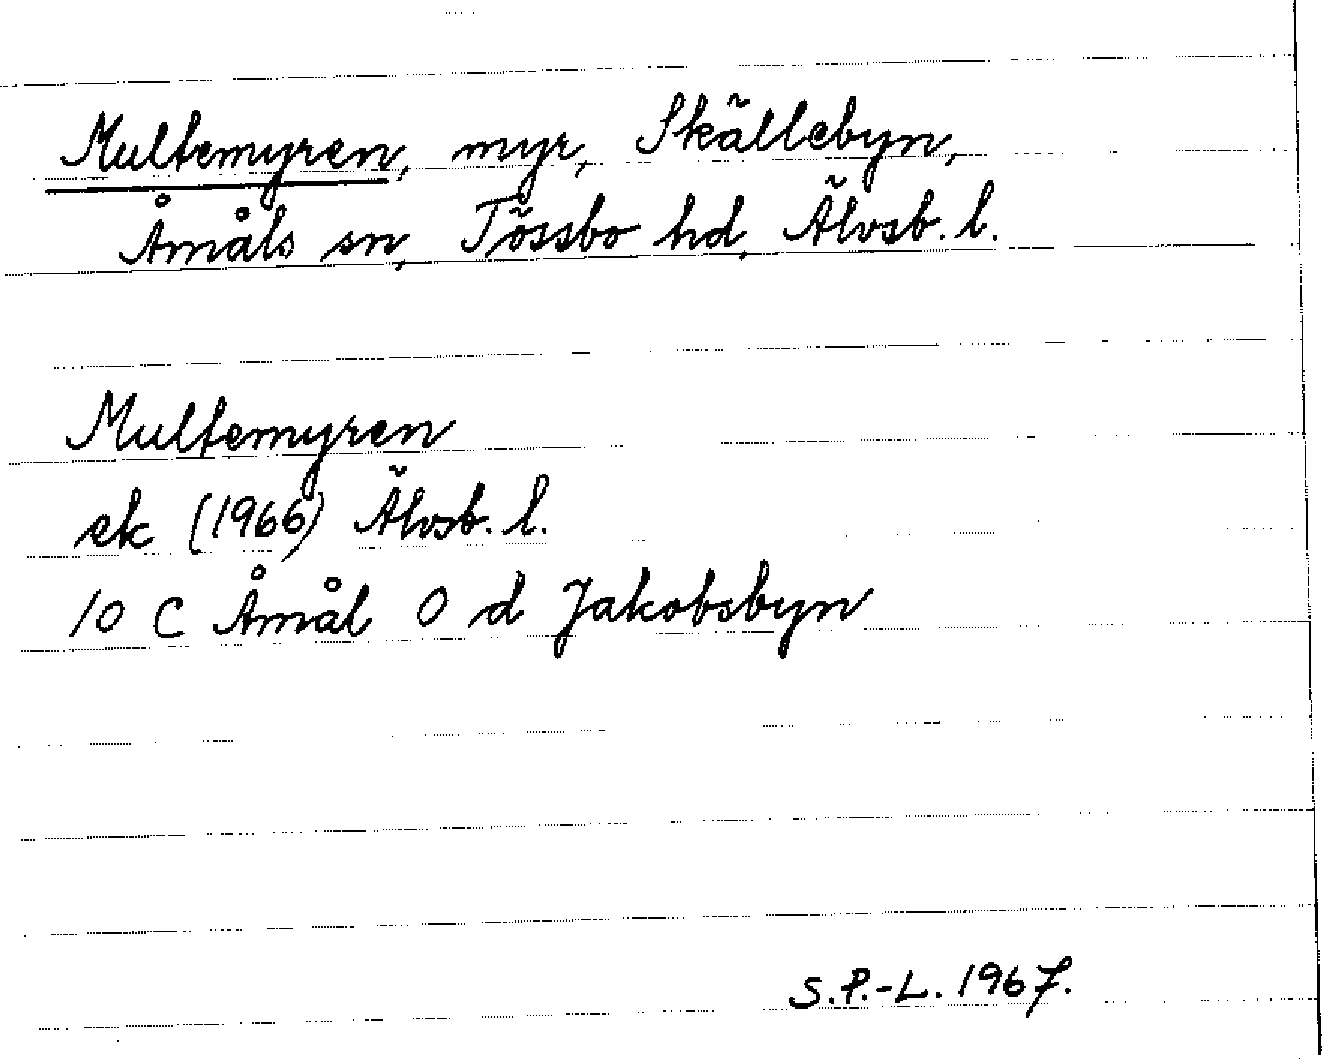 Multemyren, myr, Skällebyn,
Åmåls sn, Tössbo hd, Älvsb. l.
Multemyren
ek (1966) Älvsb. l.
10 C Åmål O d Jakobsbyn
S.P.-L. 1967.